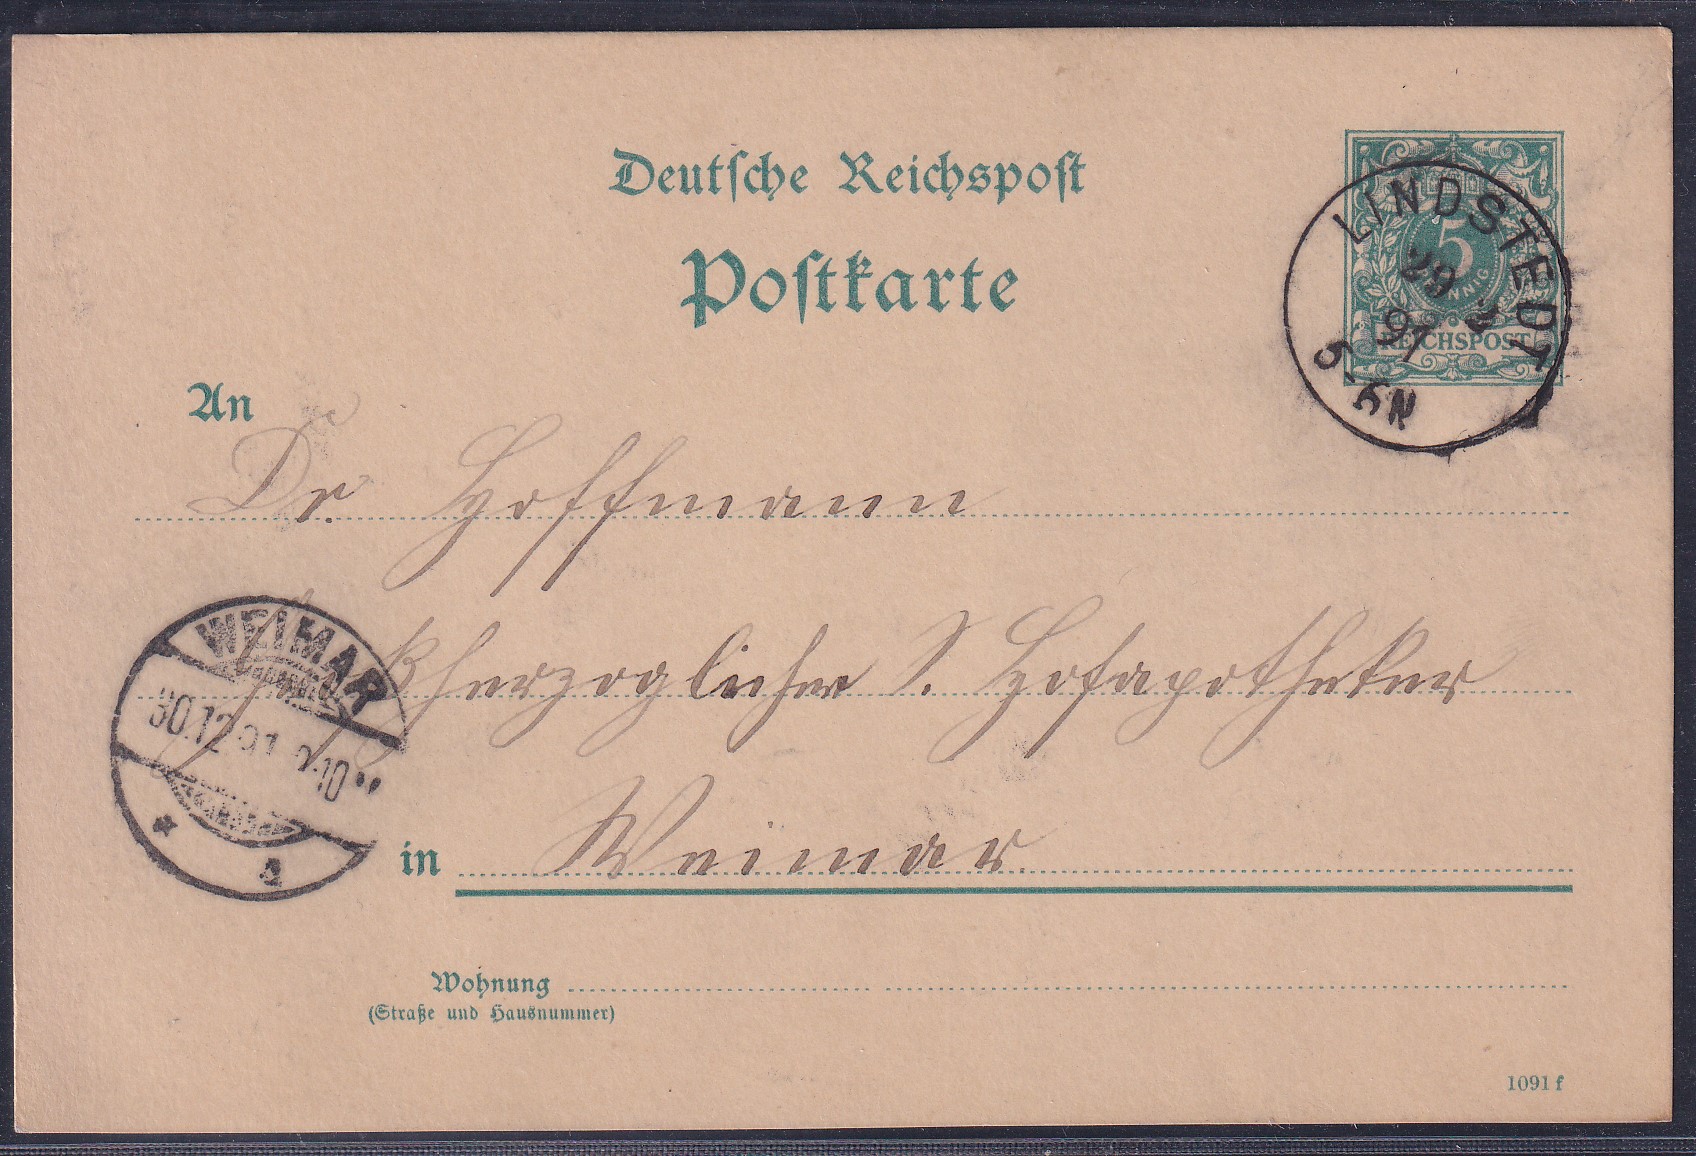 Deutsche Reichspost
Postkarte
5
PFENNIG
REICHSPOST
LINDSTEDT
29
91
5-6N
An
Dr. Hoffmann
Großherzoglicher S. Hofapotheker
WEIMAR
30.12.91 9-10
a
in Weimar.
Wohnung
(Straße und Hausnummer)
1091 f